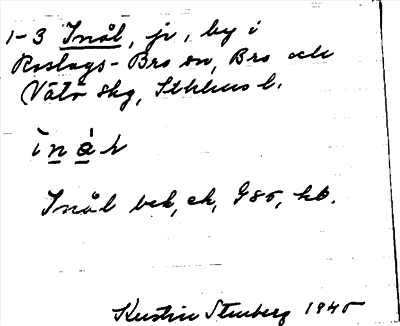 1-3 Inål, jr, by i
Roslags-Bro sn, Bro och
Vätö skg, Sthlms l.
Inål bek, ek, G85, hb.
Kerstin Stenberg 1945